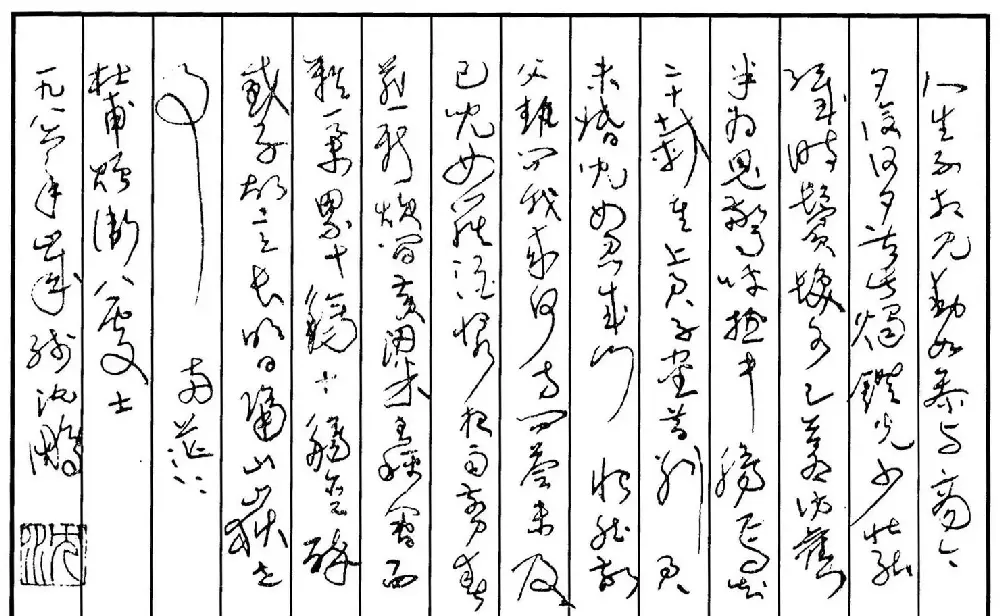 人生不相見動如參与商今
夕復何夕共此燭鐙光少壯能
幾時鬢髮各已蒼訪舊
半為鬼驚呼熱中腸焉知
二十載重上君子堂昔別君
未婚兒女忽成行 怡然敬
父執問我來何方問答未及
已兒女羅酒漿夜雨剪春
韭新炊間黃粱主稱會面
難一舉累十觴十觴亦醉
感子故意長明日隔山岳世
事 兩茫茫
杜甫贈衛八處士
一九八年歲殘沈鵬